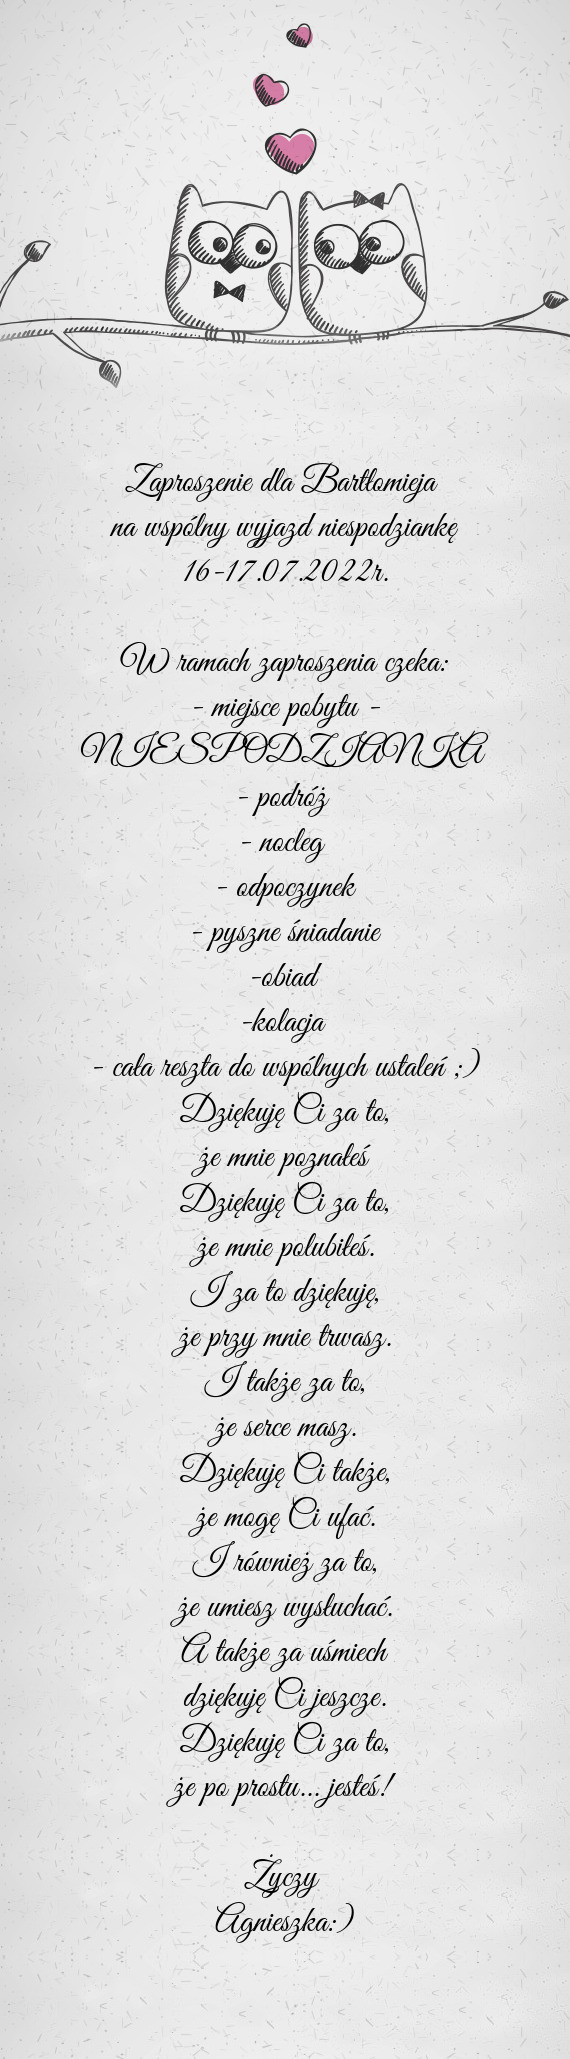 Zaproszenie dla Bartłomieja
na wspólny wyjazd niespodziankę
16-17.07.2022r.
W ramach zaproszenia czeka:
- miejsce pobytu -
NIESPODZIANKA
- podróż
- nocleg
- odpoczynek
- pyszne śniadanie
-obiad
-kolacja
- cała reszta do wspólnych ustaleń ;)
Dziękuję Ci za to,
że mnie poznałeś
Dziękuję Ci za to,
że mnie polubiłeś.
I za to dziękuję,
że przy mnie trwasz.
I także za to,
że serce masz.
Dziękuję Ci także,
że mogę Ci ufać.
I również za to,
że umiesz wysłuchać.
A także za uśmiech
dziękuję Ci jeszcze.
Dziękuję Ci za to,
że po prostu... jesteś!
Życzy
Agnieszka:)